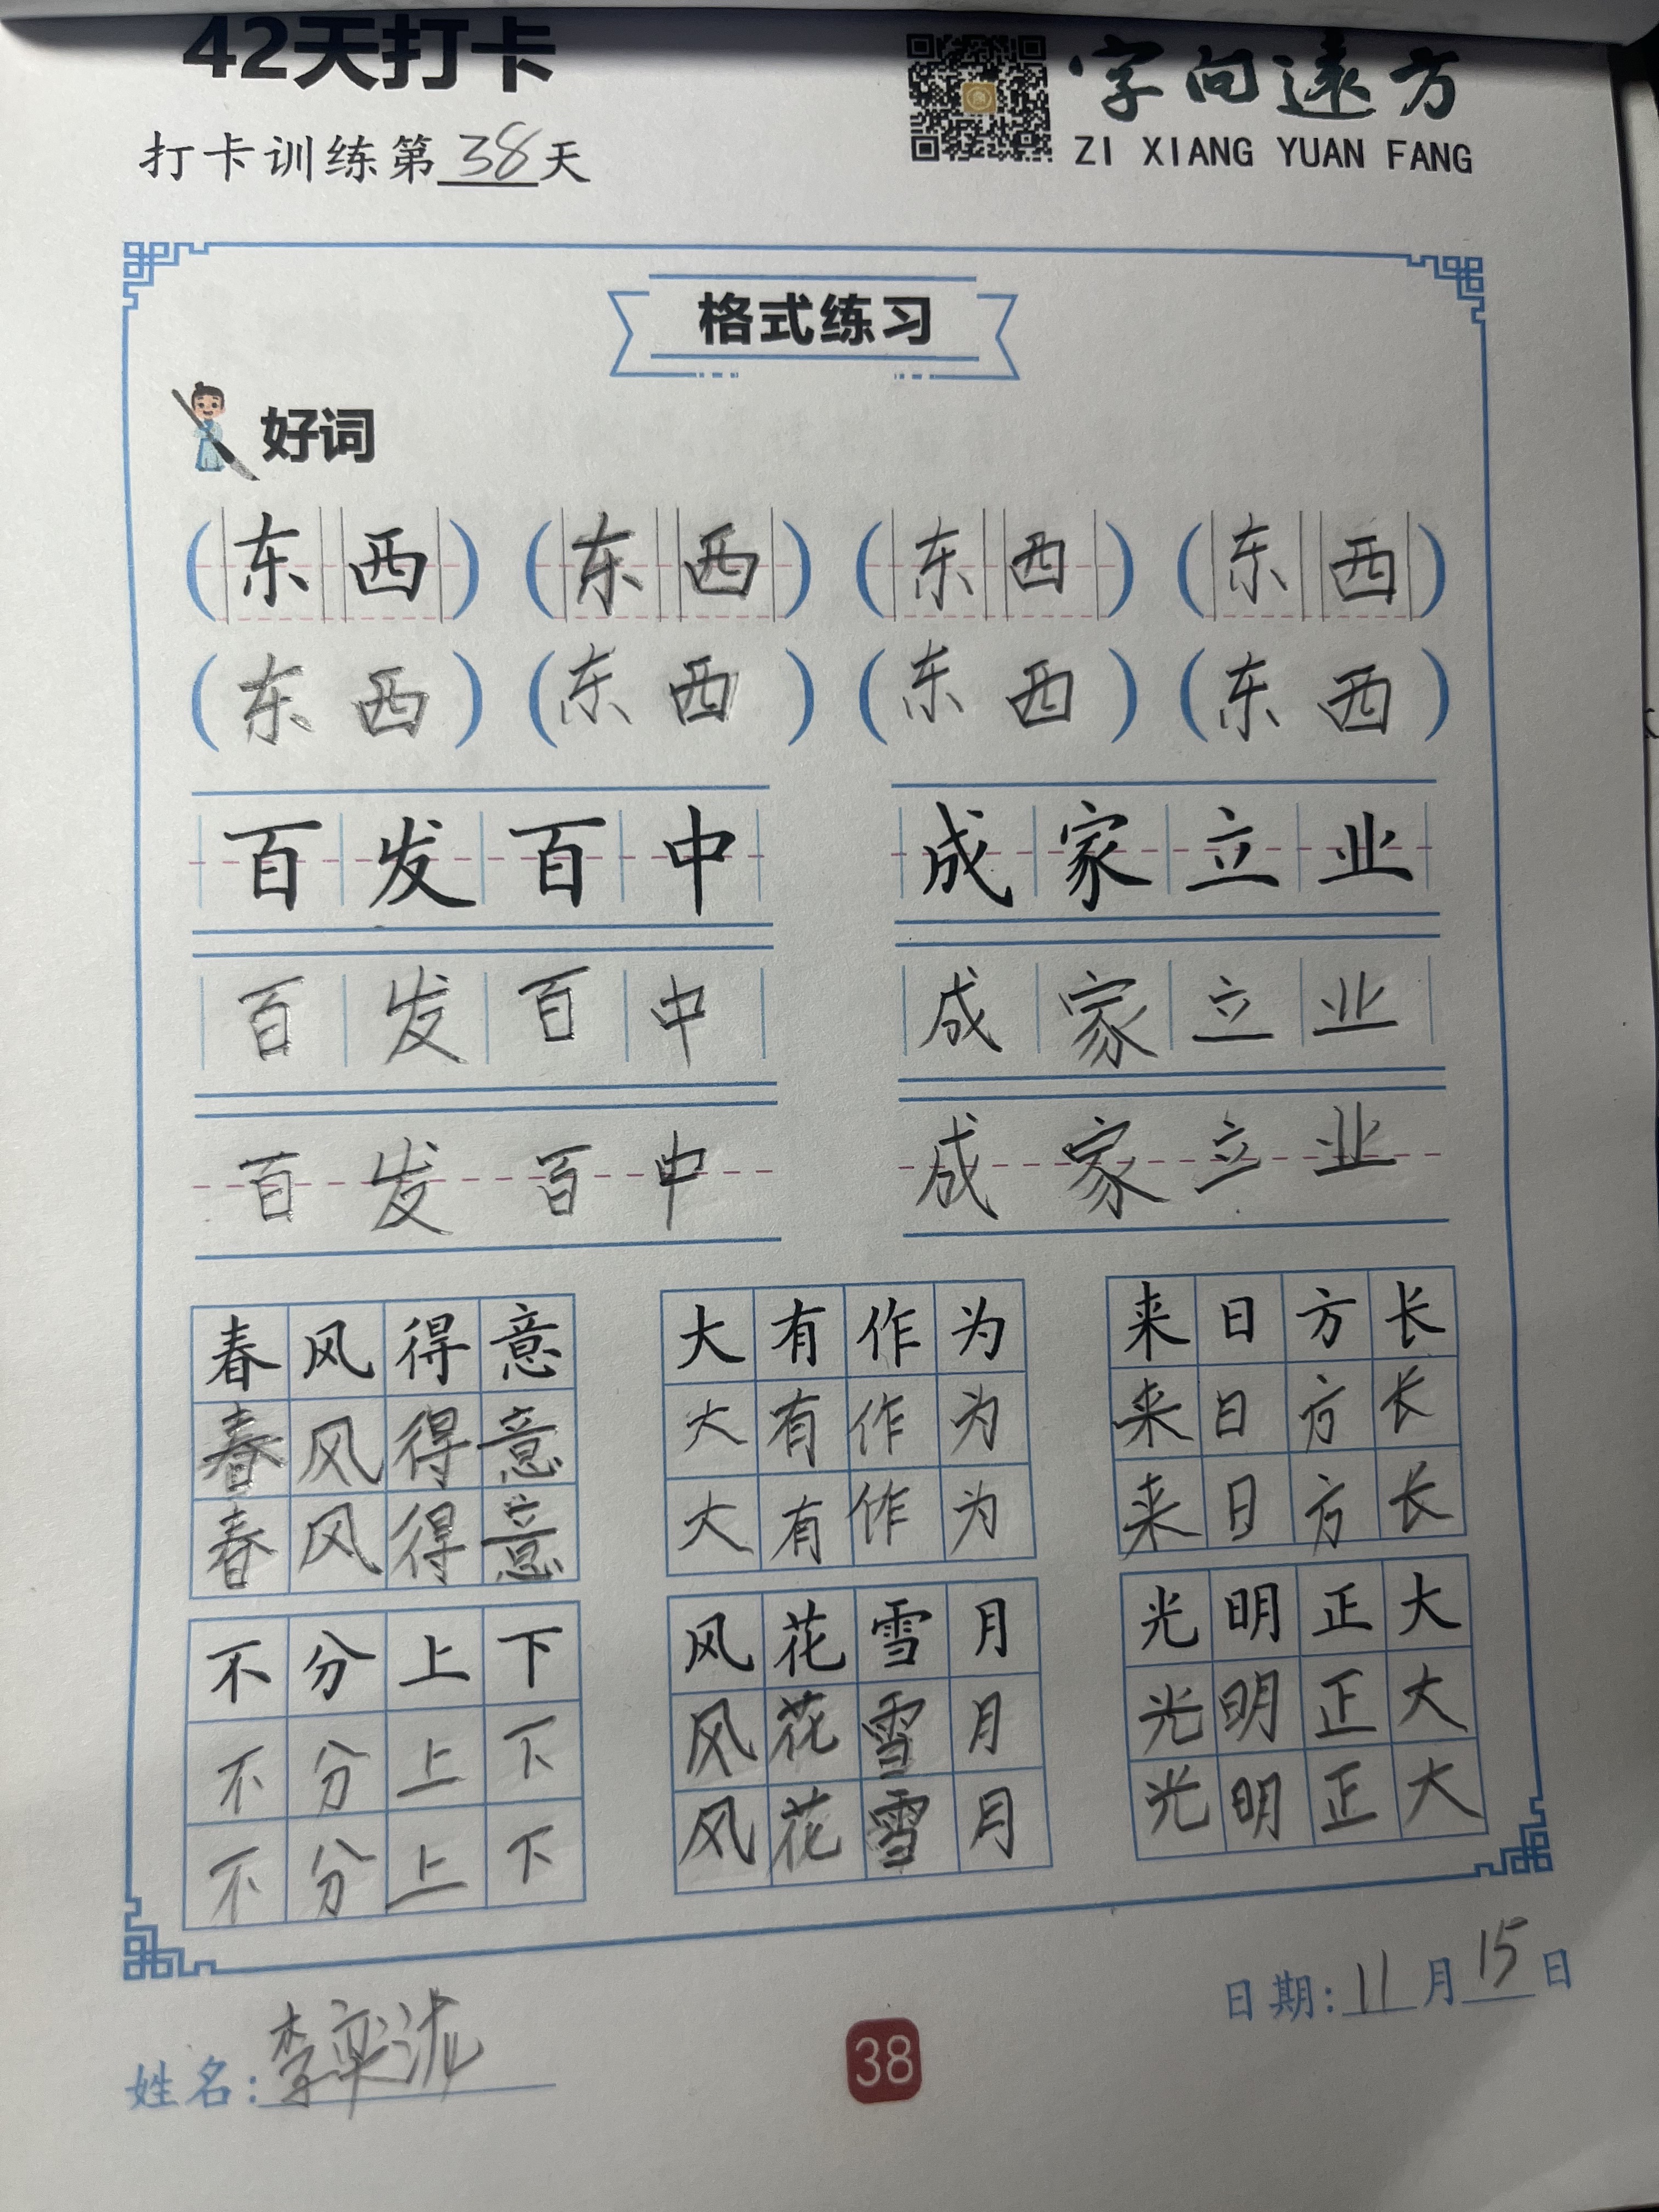 42天打卡
字向遠方
打卡训练第38天
ZI XIANG YUAN FANG
格式练习
好词
(东西) (东西) (东西) (东西)
(东西) (东西) (东西) (东西)
百发百中 成家立业
百发百中 成家立业
百发百中 成家立业
春风得意 大有作为 来日方长
春风得意 大有作为 来日方长
春风得意 大有作为 来日方长
不分上下 风花雪月 光明正大
不分上下 风花雪月 光明正大
不分上下 风花雪月 光明正大
日期:11月15日
姓名:李奕
38